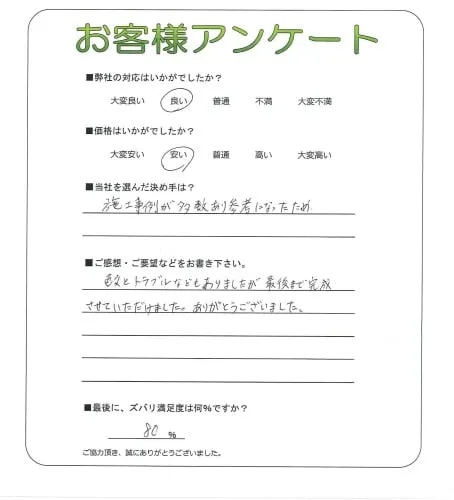 お客様アンケート
■弊社の対応はいかがでしたか?
大変良い 良い 普通 不満 大変不満
■価格はいかがでしたか?
大変安い 安い 普通 高い 大変高い
■当社を選んだ決め手は?
施工事例が多数あり参考になったため
■ご感想・ご要望などをお書き下さい。
色々とトラブルなどもありましたが最後まで完成
させていただけました。ありがとうございました。
■最後に、ズバリ満足度は何%ですか?
80 %
ご協力頂き、誠にありがとうございました。